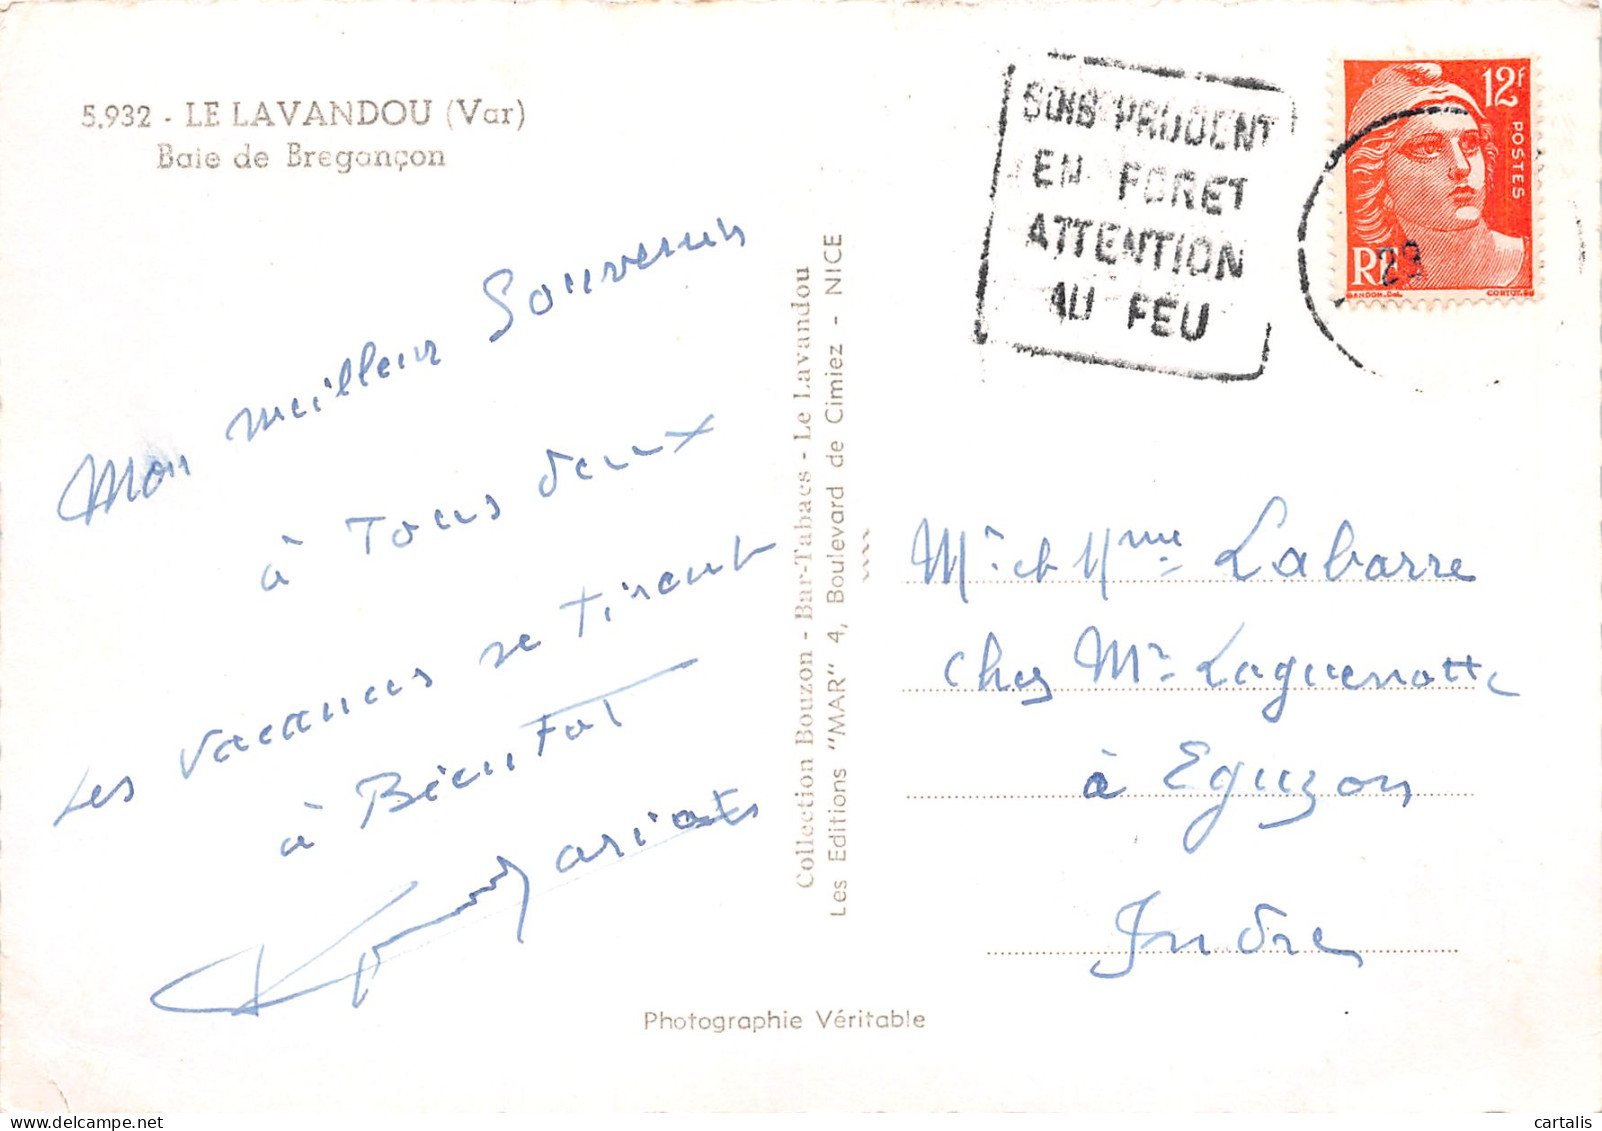 5.932 - LE LAVANDOU (Var)
Baie de Bregançon
Mon meilleur Souvenir
à Tous deux
Les vacances se Tirent
à BienTot
Collection Bouzon - Bar-Tabacs - Le Lavandou
Les Editions "MAR" 4, Boulevard de Cimiez - NICE
SOIS PRUDENT
EN FORET
ATTENTION
AU FEU
12F
POSTES
RF
GANDON.Del.
23
Mr et Mme Labarre
chez Mr Laguenotte
à Eguzon
Indre
Photographie Véritable
cartalis